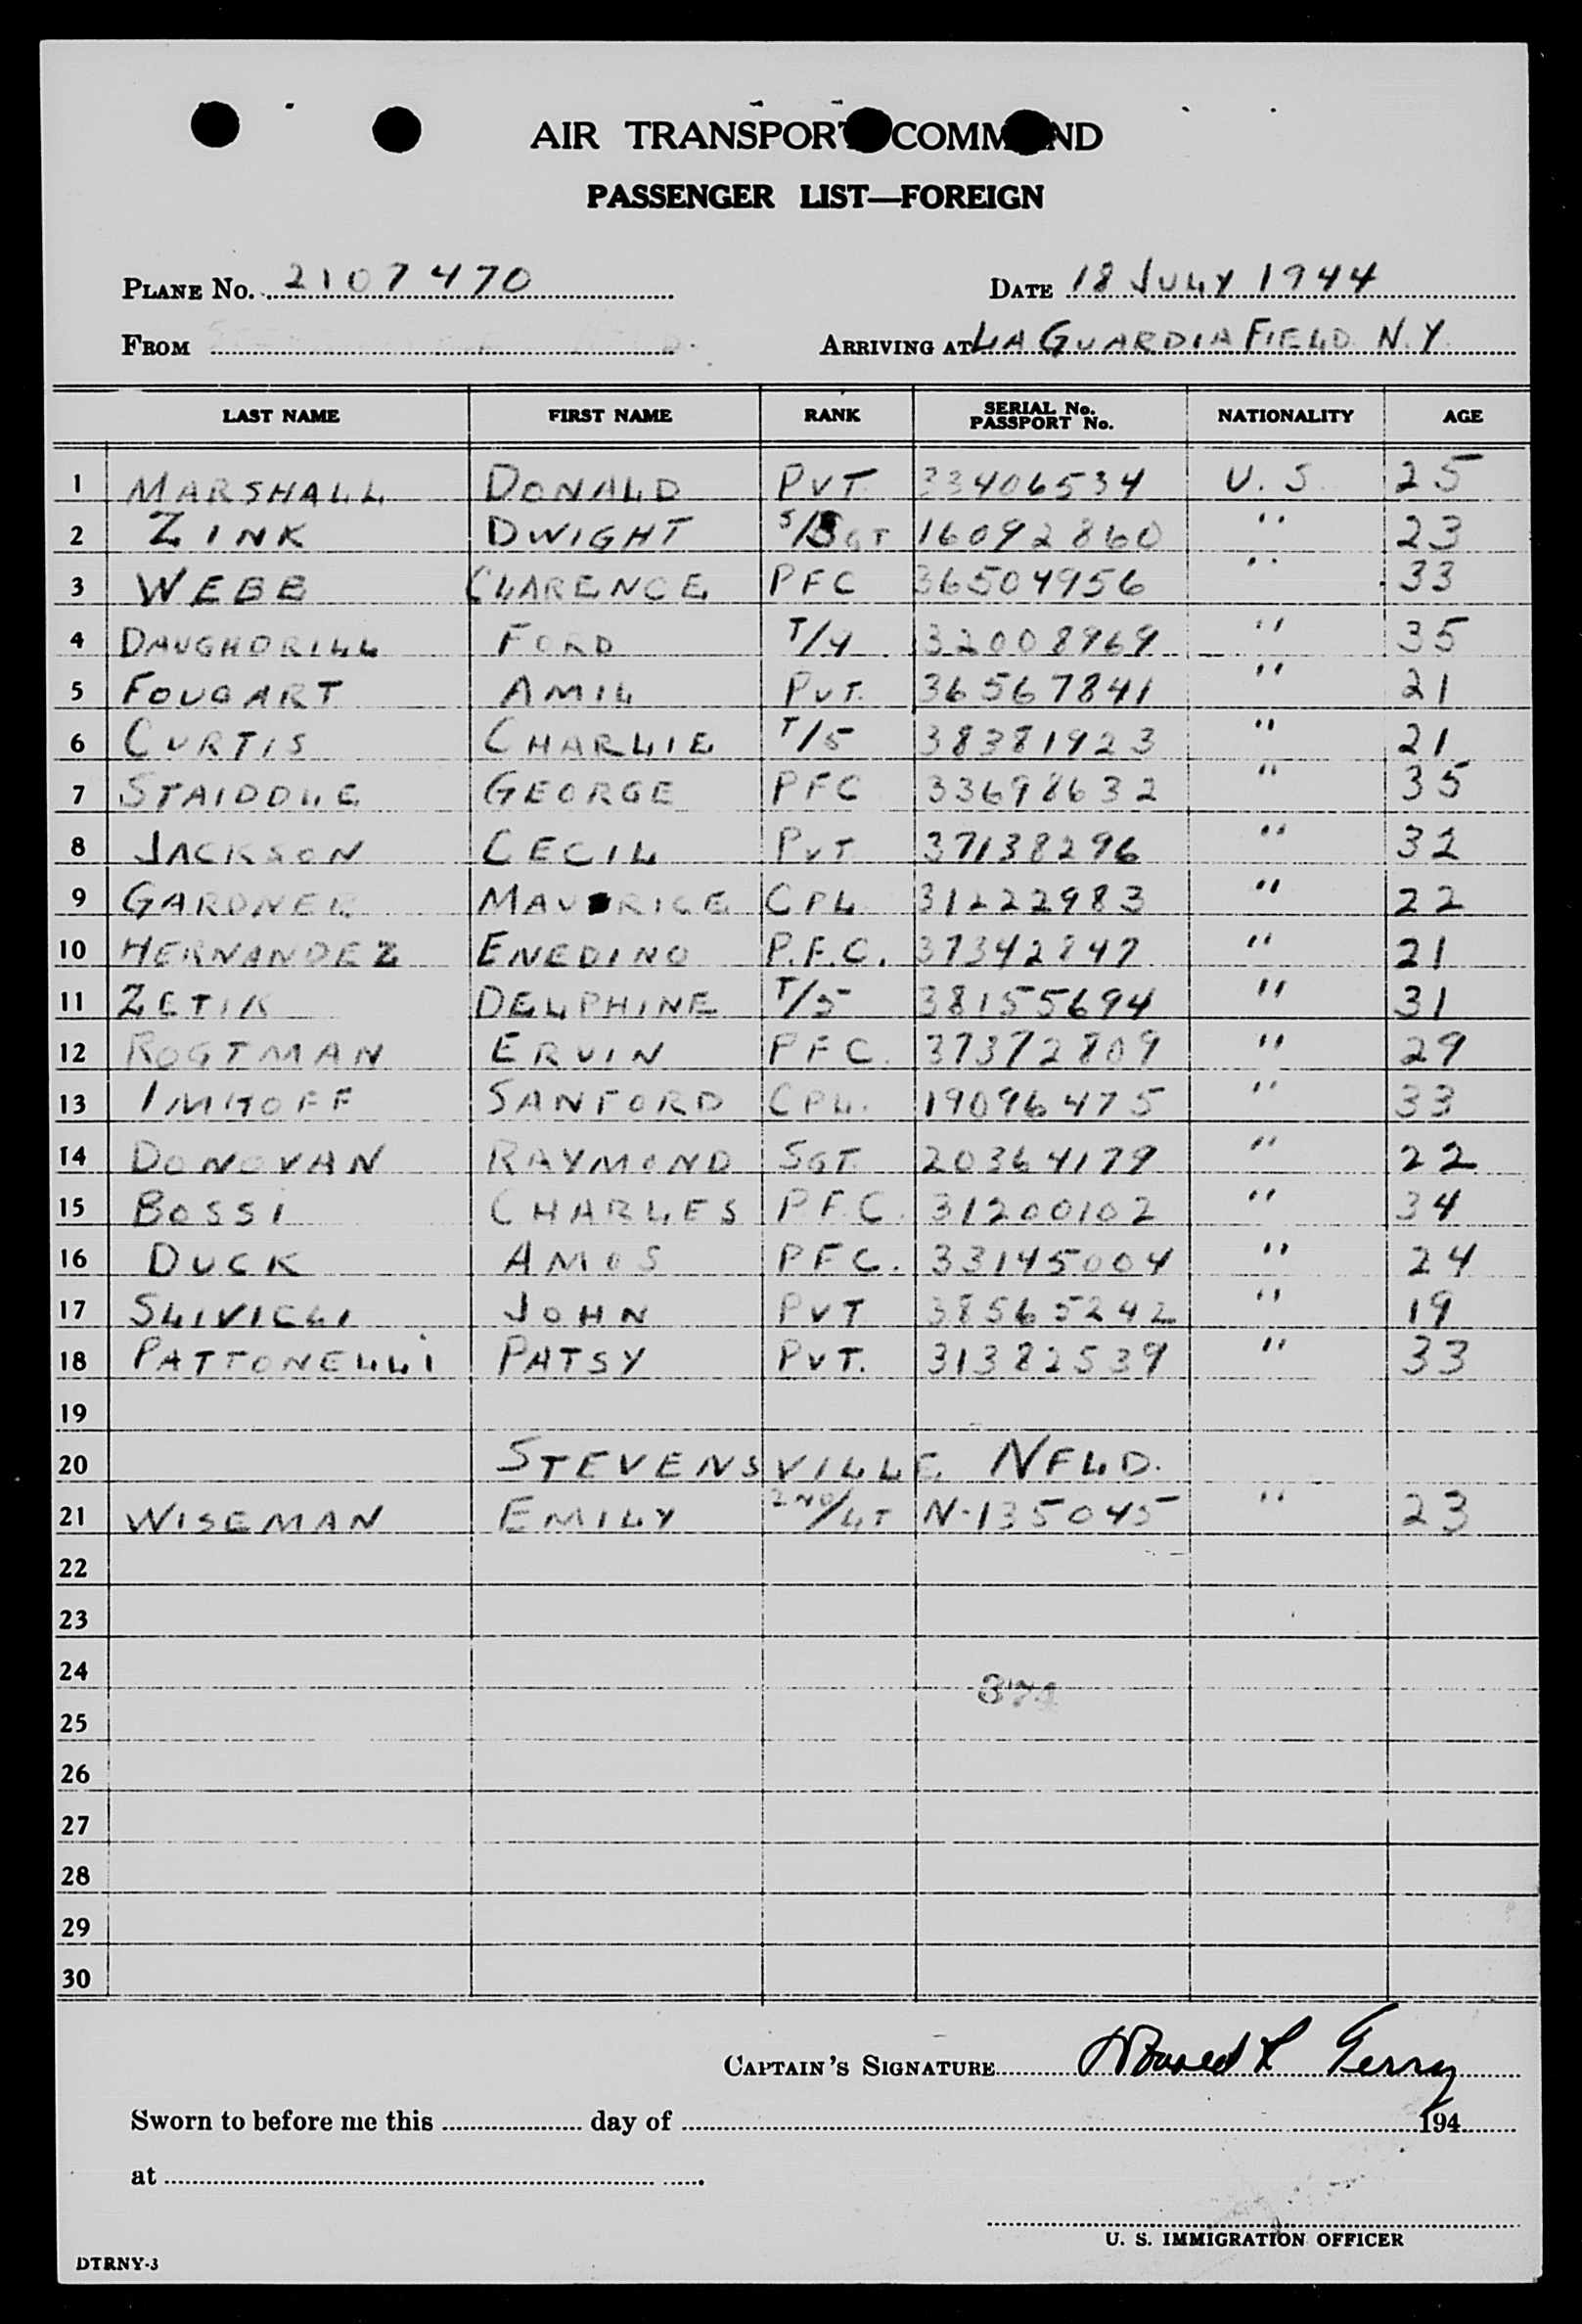 AIR TRANSPORT COMMAND
PASSENGER LIST—FOREIGN
PLANE NO. 2107470 DATE 18 JULY 1944
FROM ARRIVING AT LA GUARDIA FIELD N.Y.
LAST NAME FIRST NAME RANK SERIAL No. PASSPORT No. NATIONALITY AGE
1 MARSHALL DONALD PVT 33406534 U.S. 25
2 ZINK DWIGHT S/SGT 16092860 " 23
3 WEBB CLARENCE PFC 36504956 " 33
4 DAUGHDRILL FORD T/4 32008969 " 35
5 FOUGART AMIL PVT. 36567841 " 21
6 CURTIS CHARLIE T/5 38381923 " 21
7 STAIDDLE GEORGE PFC 33698632 " 35
8 JACKSON CECIL PVT 37138296 " 32
9 GARDNER MAURICE CPL 31222983 " 22
10 HERNANDEZ ENEDINO P.F.C. 37342847 " 21
11 ZETIK DELPHINE T/5 38155694 " 31
12 ROGTMAN ERVIN PFC. 37372809 " 29
13 IMHOFF SANFORD CPL. 19096475 " 33
14 DONOVAN RAYMOND SGT 20364179 " 22
15 BOSSI CHARLES PFC. 31200102 " 34
16 DUCK AMOS PFC. 33145004 " 24
17 SLIVICLI JOHN PVT 38565242 " 19
18 PATTONELLI PATSY PVT. 31382539 " 33
19
20 STEVENSVILLE NFLD.
21 WISEMAN EMILY 2ND/LT N-135045 " 23
22
23
24
25
26
27
28
29
30
CAPTAIN'S SIGNATURE L Terry
Sworn to before me this day of 194
at
U. S. IMMIGRATION OFFICER
DTRNY-3